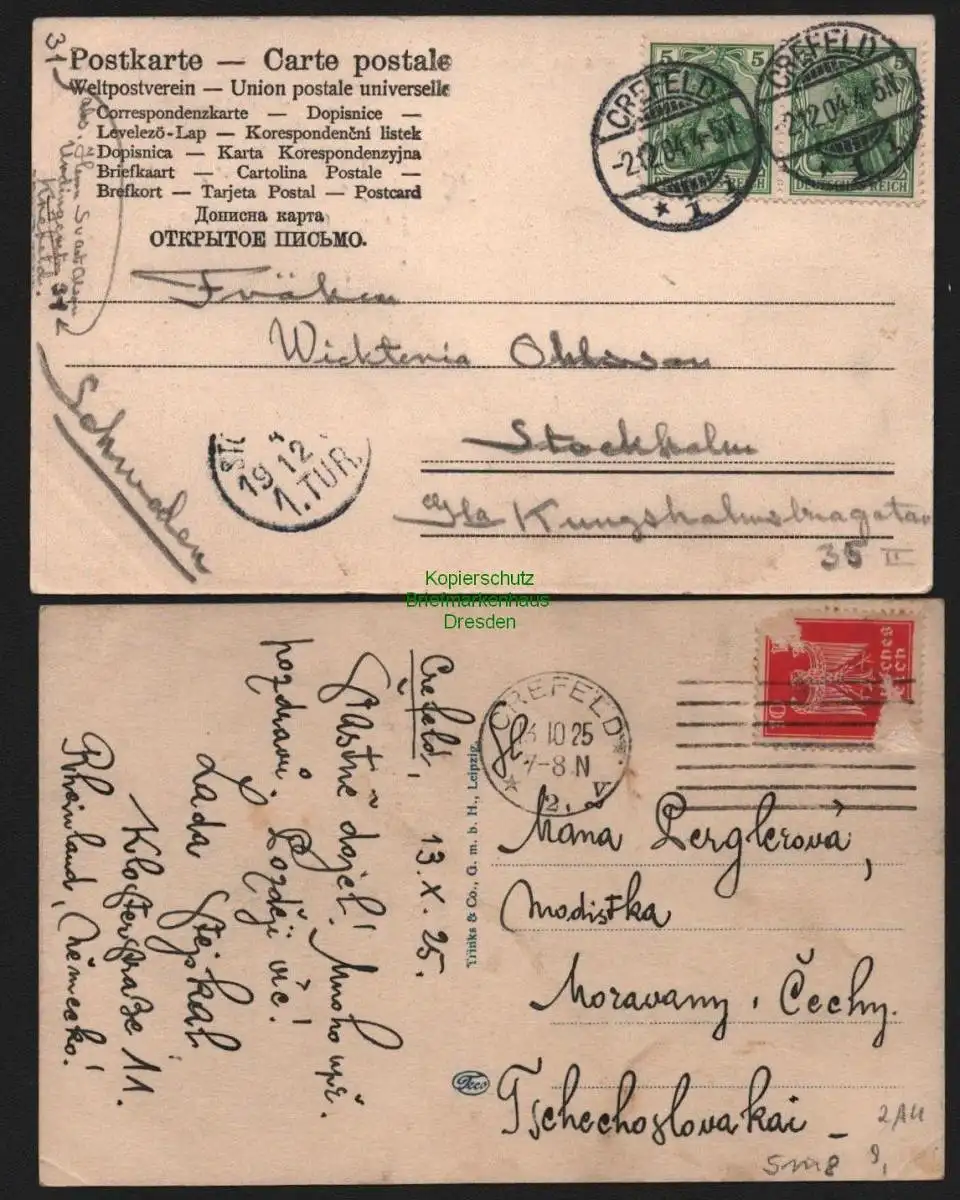 Postkarte — Carte postale
Weltpostverein — Union postale universelle
Correspondenzkarte — Dopisnice —
Levelező-Lap — Korespondenční listek
Dopisnica — Karta Korespondenzyjna
Briefkaart — Cartolina Postale —
Brefkort — Tarjeta Postal — Postcard
Дописна карта
ОТКРЫТОЕ ПИСЬМО.
5 5
DEUTSCHES REICH
CREFELD
-2.12.04.4-5N.
* 1
CREFELD
-2.12.04.4-5N.
* 1
31
Abs. Herrn
Krefeld.
Fröken
Wicktoria Ohlsson
Stockholm
Kungsholmsbrogatan
35 II
Schweden
19 12
1.TUR.
Kopierschutz
Briefmarkenhaus
Dresden
Crefeld, 13.X.25.
Šťastně dojel! Mnoho upř.
pozdravů. Později víc!
Lada Stejskal
Klosterstraße 11.
Rheinland, Německo!
Trinks & Co., G. m. b. H., Leipzig.
Teco
CREFELD
13 10 25
7-8 N
* 2. V
Sl.
Máňa Perglerová,
modistka
Moravany, Čechy.
Tschechoslovakai
5m8